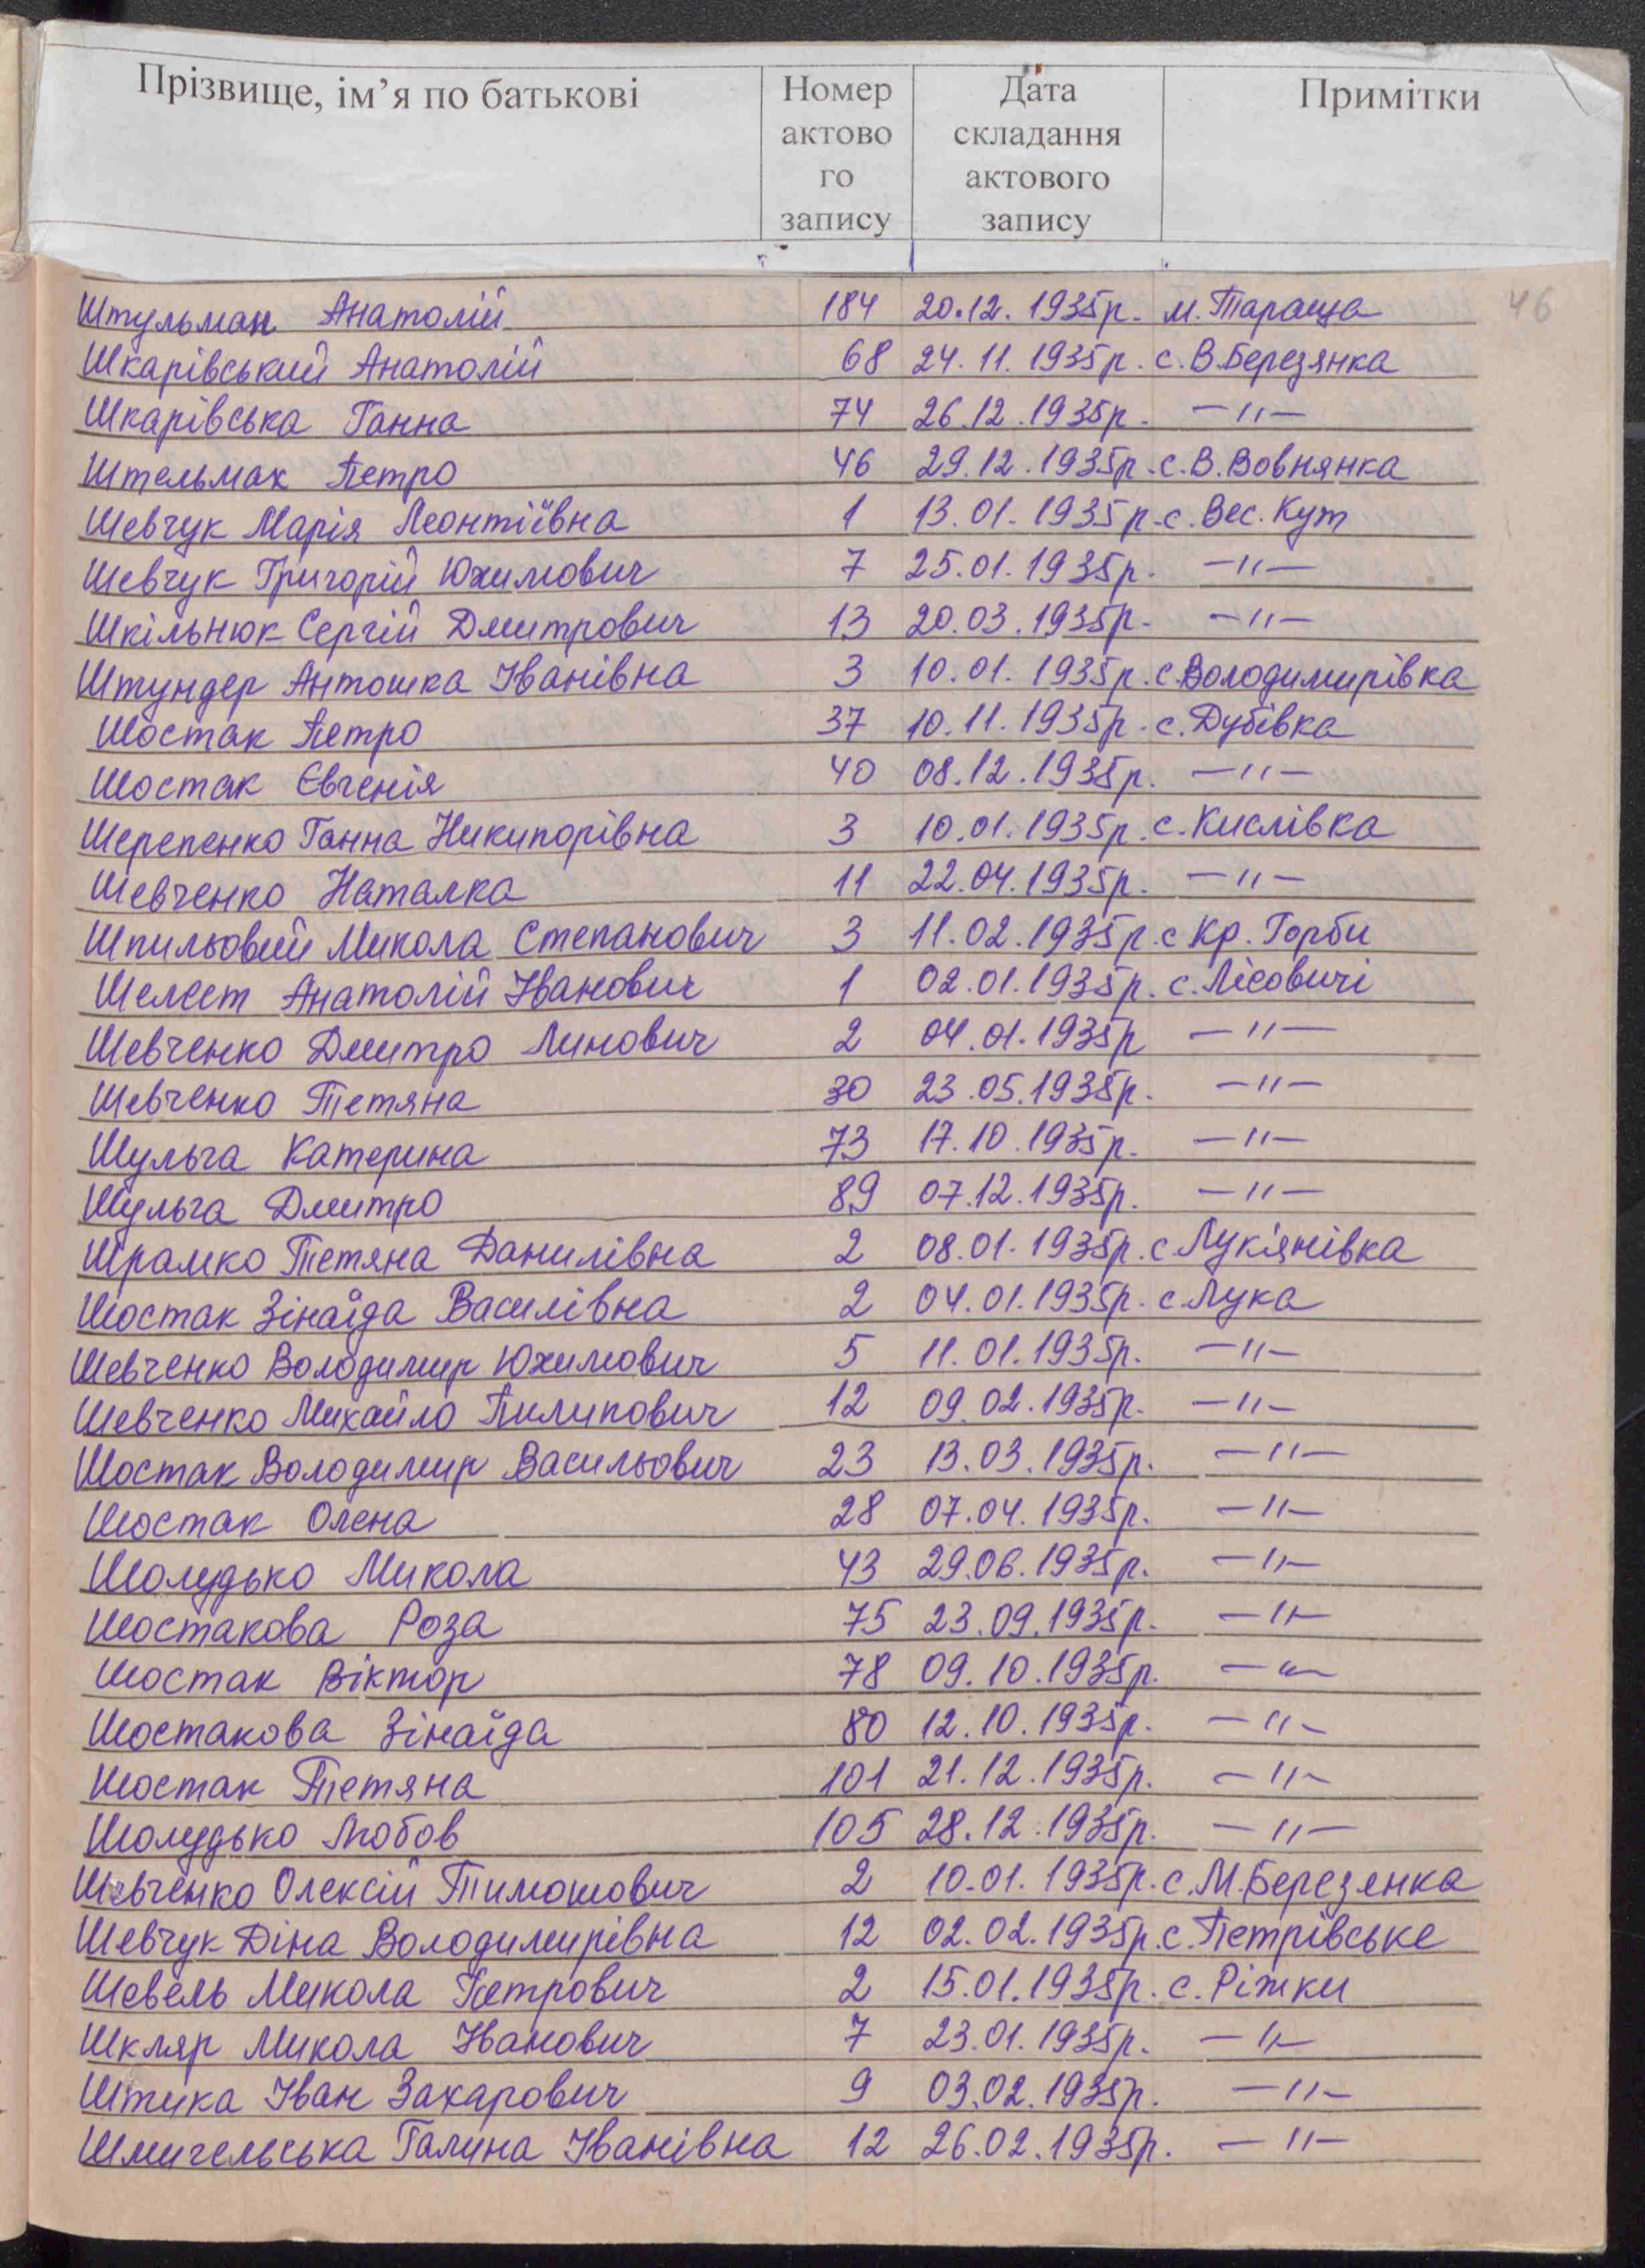 Прізвище, ім’я по батькові Номер актово го запису Дата складання актового запису Примітки
46
Штульман Анатолій 184 20.12.1935р. м. Тараща
Шкарівський Анатолій 68 24.11.1935р. с. В.Березянка
Шкарівська Ганна 74 26.12.1935р. —"—
Штельмах Петро 46 29.12.1935р. с. В. Вовнянка
Шевчук Марія Леонтіївна 1 13.01.1935р. с. Вес. Кут
Шевчук Григорій Юхимович 7 25.01.1935р. —"—
Шкільнюк Сергій Дмитрович 13 20.03.1935р. —"—
Штундер Антошка Іванівна 3 10.01.1935р. с.Володимирівка
Шостак Петро 37 10.11.1935р. с. Дубівка
Шостак Євгенія 40 08.12.1935р. —"—
Шерепенко Ганна Никипорівна 3 10.01.1935р. с. Кислівка
Шевченко Наталка 11 22.04.1935р. —"—
Шпильовий Микола Степанович 3 11.02.1935р. с Кр. Горби
Шелест Анатолій Іванович 1 02.01.1935р. с. Лісовичі
Шевченко Дмитро Линович 2 04.01.1935р —"—
Шевченко Тетяна 30 23.05.1935р. —"—
Шульга Катерина 73 17.10.1935р. —"—
Шульга Дмитро 89 07.12.1935р. —"—
Шрамко Тетяна Данилівна 2 08.01.1935р. с Лук'янівка
Шостак Зінаїда Василівна 2 04.01.1935р. с Лука
Шевченко Володимир Юхимович 5 11.01.1935р. —"—
Шевченко Михайло Пилипович 12 09.02.1935р. —"—
Шостак Володимир Васильович 23 13.03.1935р. —"—
Шостак Олена 28 07.04.1935р. —"—
Шолудько Микола 43 29.06.1935р. —"—
Шостакова Роза 75 23.09.1935р. —"—
Шостак Віктор 78 09.10.1935р. —"—
Шостакова Зінаїда 80 12.10.1935р. —"—
Шостак Тетяна 101 21.12.1935р. —"—
Шолудько Любов 105 28.12.1935р. —"—
Шевченко Олексій Тимошович 2 10.01.1935р. с. М.Березенка
Шевчук Діна Володимирівна 12 02.02.1935р. с. Петрівське
Шевель Микола Петрович 2 15.01.1935р. с. Ріжки
Шкляр Микола Іванович 7 23.01.1935р. —"—
Штика Іван Захарович 9 03.02.1935р. —"—
Шмигельська Галина Іванівна 12 26.02.1935р. —"—